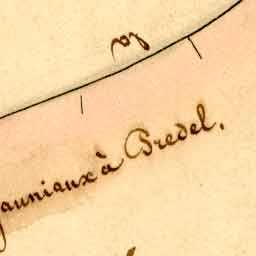 auniaux à Bredel.